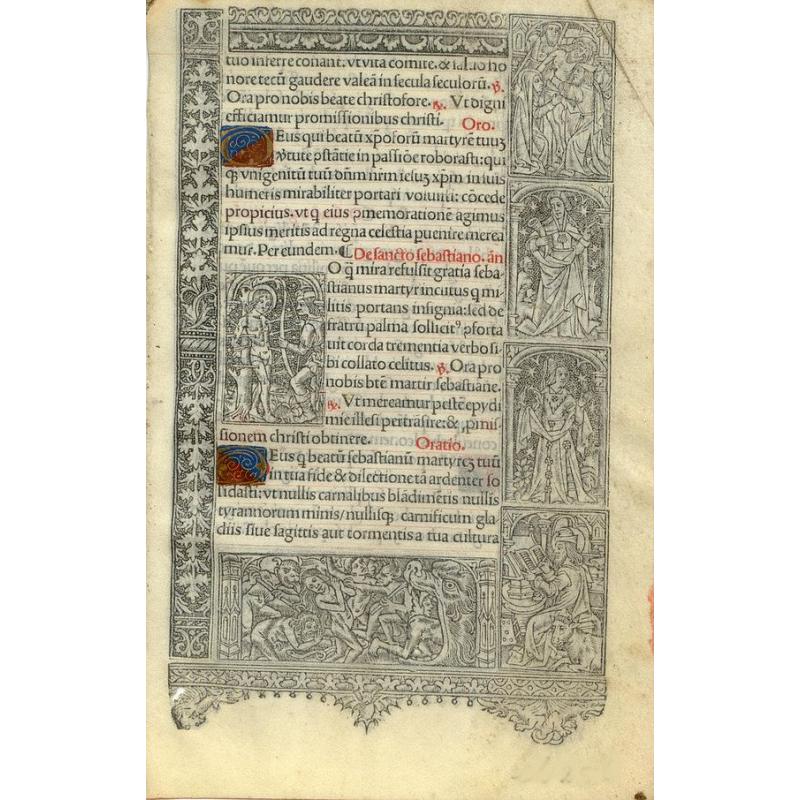 tuo inferre conant̄. vt vita comite. & ial. io ho
nore tecū gaudere valeā in secula seculorū. ℣.
Ora pro nobis beate christofore. ℟. Vt digni
efficiamur promissionibus christi. Oro.
Eus qui beatū xp̄oforū martyrē tuuȝ
v̄tute p̄stātie in passiōe roborasti: qui
q̄ vnigenitū tuū dn̄m nr̄m iesuȝ xp̄m in suis
humeris mirabiliter portari voluisti: cōcede
propicius. vt q eius ꝯmemorationē agimus
ipsius meritis ad regna celestia ꝑuenire merea
mur. Per eundem. ¶ De sancto sebastiano. ān
O q̄ mira refulsit gratia seba
stianus martyr inclitus q mi-
litis portans insignia: sed de
fratrū palma sollicitꝰ ꝯforta
uit corda trementia verbo si-
bi collato celitus. ℣. Ora pro
nobis btē martir sebastiane.
℟. Vt mereamur pestē epydi
mie illesi pertrāsire: & ꝓmis-
sionem christi obtinere. Oratio.
Eus q beatū sebastianū martyrēȝ tuū
in tua fide & dilectione tā ardenter so
lidasti: vt nullis carnalibus blādimētis nullis
tyrannorum minis/ nullisqȝ carnificum gla
diis siue sagittis aut tormentis a tua cultura